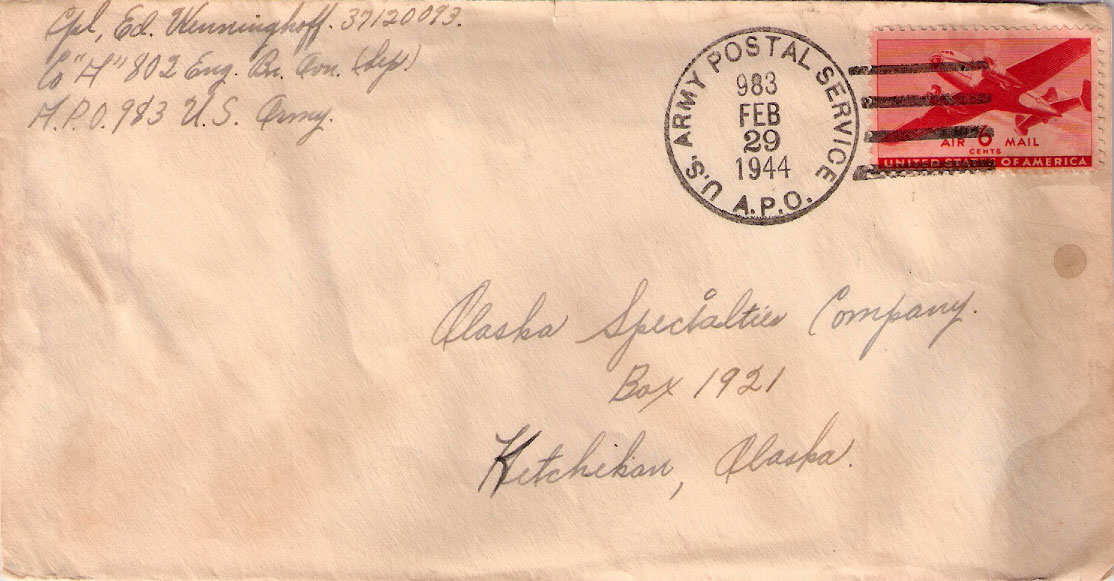 Cpl, Ed. Wenninghoff. 37120093.
Co "A" 802 Eng. Bn. Avn. (Sep)
A.P.O. 983 U.S. Army.
U.S. ARMY POSTAL SERVICE
983
FEB
29
1944
A.P.O.
AIR 6 MAIL
CENTS
UNITED STATES OF AMERICA
Alaska Specialties Company.
Box 1921
Ketchikan, Alaska.